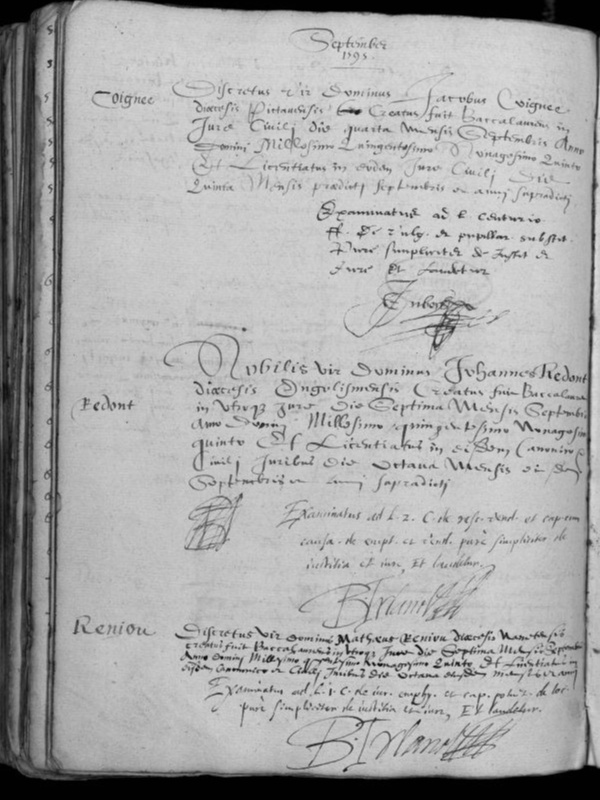 September
1595.
Coignee
Discretus vir Dominus Jacobus Coignee
diœcesis Pictaviensis Creatus fuit Baccalaureus in
Jure Civilj die quarta Mensis Septembris Anno
Domini Millesimo Quingentesimo Nonagesimo Quinto
Et Licentiatus in eodem Jure Civilj Die
Quinta Mensis prædictj Septembris et annj supradictj
Examinatus ad l. Centurio
ff. de vulg. et pupillar. substit.
Pure simpliciter de Justit. et
Jure Et laudetur
Nobilis vir Dominus Johannes Redont
diœcesis Engolismensis Creatus fuit Baccalaureus
in Vtroq; Jure Die Septima Mensis Septembris
Anno Dominj Millesimo quingentesimo Nonagesimo
quinto Et Licentiatus in eisdem Canonico et
Civilj Juribus Die Octava Mensis
Septembris et annj supradictj
Redont
Examinatus ad l. 2. C. de resc. vend. et cap. cum
causa. de empt. et vend. purè simpliciter de
iustitia et iure, Et laudetur.
B Irland
Reniou
Discretus vir Dominus Matheus Reniou diœcesis Nanetensis
creatus fuit Baccalaureus in Vtroq; Jure die Septima Mensis Septembris
Anno Dominj Millesimo quingentesimo Nonagesimo Quinto Et Licentiatus in
eisdem Canonico et Civilj Juribus Die Octava
Examinatus ad l. 1. C. de iur. emphy. et cap. potuit. de loc.
purè simpliciter de iustitia et iure, Et laudetur.
B. Irland